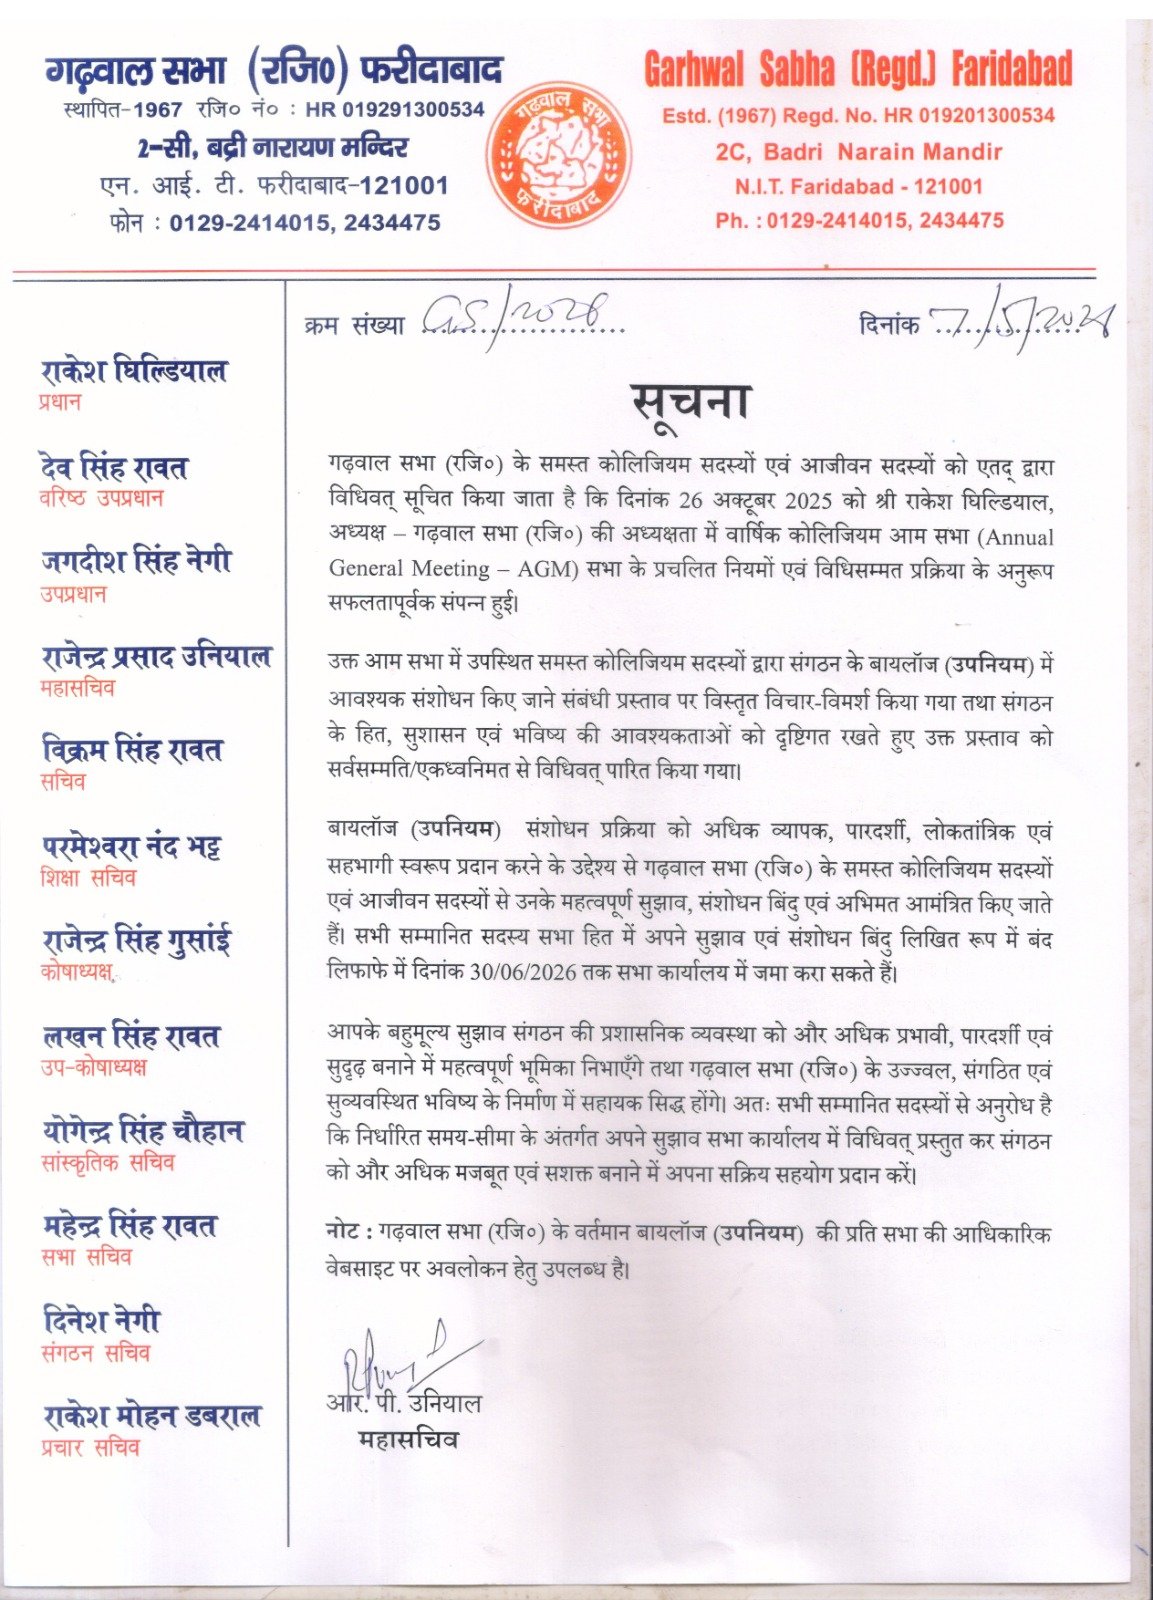 गढ़वाल सभा (रजि0) फरीदाबाद
स्थापित-1967 रजि० नं० : HR 019291300534
2-सी, बद्री नारायण मन्दिर
एन. आई. टी. फरीदाबाद-121001
फोन : 0129-2414015, 2434475
गढ़वाल सभा
फरीदाबाद
Garhwal Sabha (Regd.) Faridabad
Estd. (1967) Regd. No. HR 019201300534
2C, Badri Narain Mandir
N.I.T. Faridabad - 121001
Ph. : 0129-2414015, 2434475
राकेश घिल्डियाल
प्रधान
देव सिंह रावत
वरिष्ठ उपप्रधान
जगदीश सिंह नेगी
उपप्रधान
राजेन्द्र प्रसाद उनियाल
महासचिव
विक्रम सिंह रावत
सचिव
परमेश्वरा नंद भट्ट
शिक्षा सचिव
राजेन्द्र सिंह गुसांई
कोषाध्यक्ष
लखन सिंह रावत
उप-कोषाध्यक्ष
योगेन्द्र सिंह चौहान
सांस्कृतिक सचिव
महेन्द्र सिंह रावत
सभा सचिव
दिनेश नेगी
संगठन सचिव
राकेश मोहन डबराल
प्रचार सचिव
क्रम संख्या GS/2026 दिनांक 7/5/2026
सूचना
गढ़वाल सभा (रजि०) के समस्त कोलिजियम सदस्यों एवं आजीवन सदस्यों को एतद् द्वारा
विधिवत् सूचित किया जाता है कि दिनांक 26 अक्टूबर 2025 को श्री राकेश घिल्डियाल,
अध्यक्ष – गढ़वाल सभा (रजि०) की अध्यक्षता में वार्षिक कोलिजियम आम सभा (Annual
General Meeting – AGM) सभा के प्रचलित नियमों एवं विधिसम्मत प्रक्रिया के अनुरूप
सफलतापूर्वक संपन्न हुई।
उक्त आम सभा में उपस्थित समस्त कोलिजियम सदस्यों द्वारा संगठन के बायलॉज (उपनियम) में
आवश्यक संशोधन किए जाने संबंधी प्रस्ताव पर विस्तृत विचार-विमर्श किया गया तथा संगठन
के हित, सुशासन एवं भविष्य की आवश्यकताओं को दृष्टिगत रखते हुए उक्त प्रस्ताव को
सर्वसम्मति/एकध्वनिमत से विधिवत् पारित किया गया।
बायलॉज (उपनियम) संशोधन प्रक्रिया को अधिक व्यापक, पारदर्शी, लोकतांत्रिक एवं
सहभागी स्वरूप प्रदान करने के उद्देश्य से गढ़वाल सभा (रजि०) के समस्त कोलिजियम सदस्यों
एवं आजीवन सदस्यों से उनके महत्वपूर्ण सुझाव, संशोधन बिंदु एवं अभिमत आमंत्रित किए जाते
हैं। सभी सम्मानित सदस्य सभा हित में अपने सुझाव एवं संशोधन बिंदु लिखित रूप में बंद
लिफाफे में दिनांक 30/06/2026 तक सभा कार्यालय में जमा करा सकते हैं।
आपके बहुमूल्य सुझाव संगठन की प्रशासनिक व्यवस्था को और अधिक प्रभावी, पारदर्शी एवं
सुदृढ़ बनाने में महत्वपूर्ण भूमिका निभाएँगे तथा गढ़वाल सभा (रजि०) के उज्ज्वल, संगठित एवं
सुव्यवस्थित भविष्य के निर्माण में सहायक सिद्ध होंगे। अतः सभी सम्मानित सदस्यों से अनुरोध है
कि निर्धारित समय-सीमा के अंतर्गत अपने सुझाव सभा कार्यालय में विधिवत् प्रस्तुत कर संगठन
को और अधिक मजबूत एवं सशक्त बनाने में अपना सक्रिय सहयोग प्रदान करें।
नोट : गढ़वाल सभा (रजि०) के वर्तमान बायलॉज (उपनियम) की प्रति सभा की आधिकारिक
वेबसाइट पर अवलोकन हेतु उपलब्ध है।
आर. पी. उनियाल
महासचिव